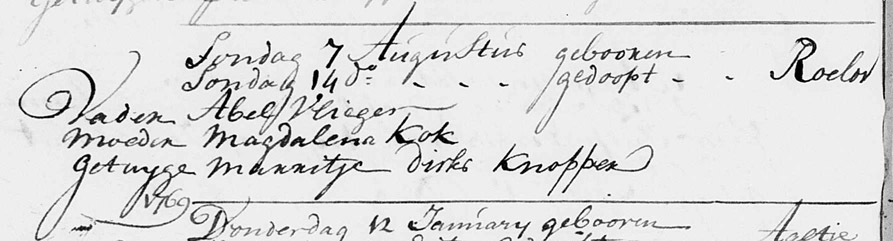 Sondag 7 Augustus gebooren
Sondag 14 do. - - - gedoopt - - Roelov
Vader Abel Vlieger
Moeder Magdalena Kok
Getuyge Mannitje Dirks Knoppen
1769
Donderdag 12 January gebooren Aaltie